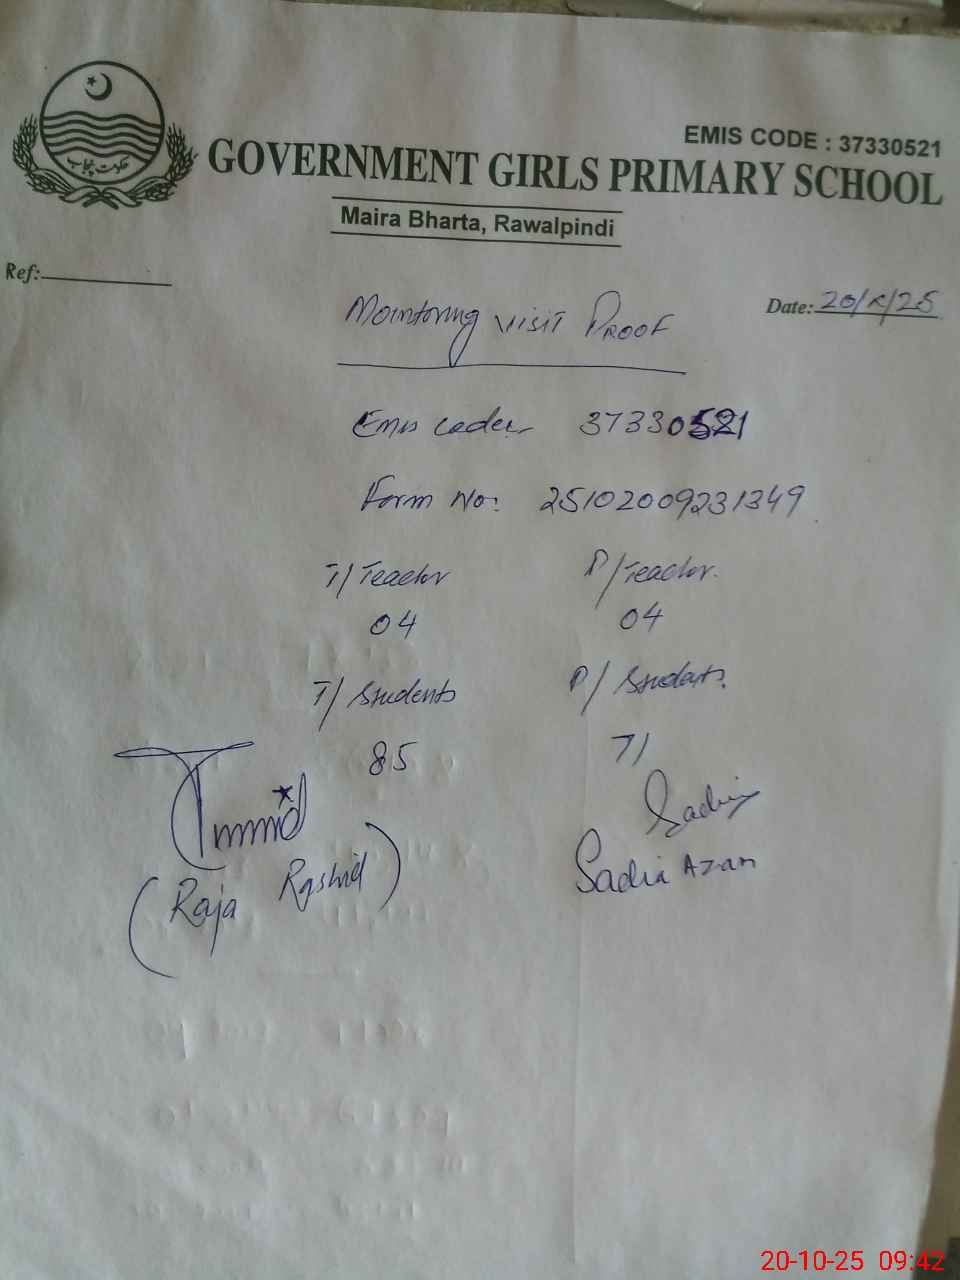 حکومت پنجاب
EMIS CODE : 37330521
GOVERNMENT GIRLS PRIMARY SCHOOL
Maira Bharta, Rawalpindi
Ref:
Date: 20/x/25
Monitoring visit Proof
Emis code:- 37330521
Form No: 25102009231349
T/Teacher P/Teacher.
04 04
T/Students P/Students.
85 71
Sadia
(Raja Rashid) Sadia Azam
20-10-25 09:42